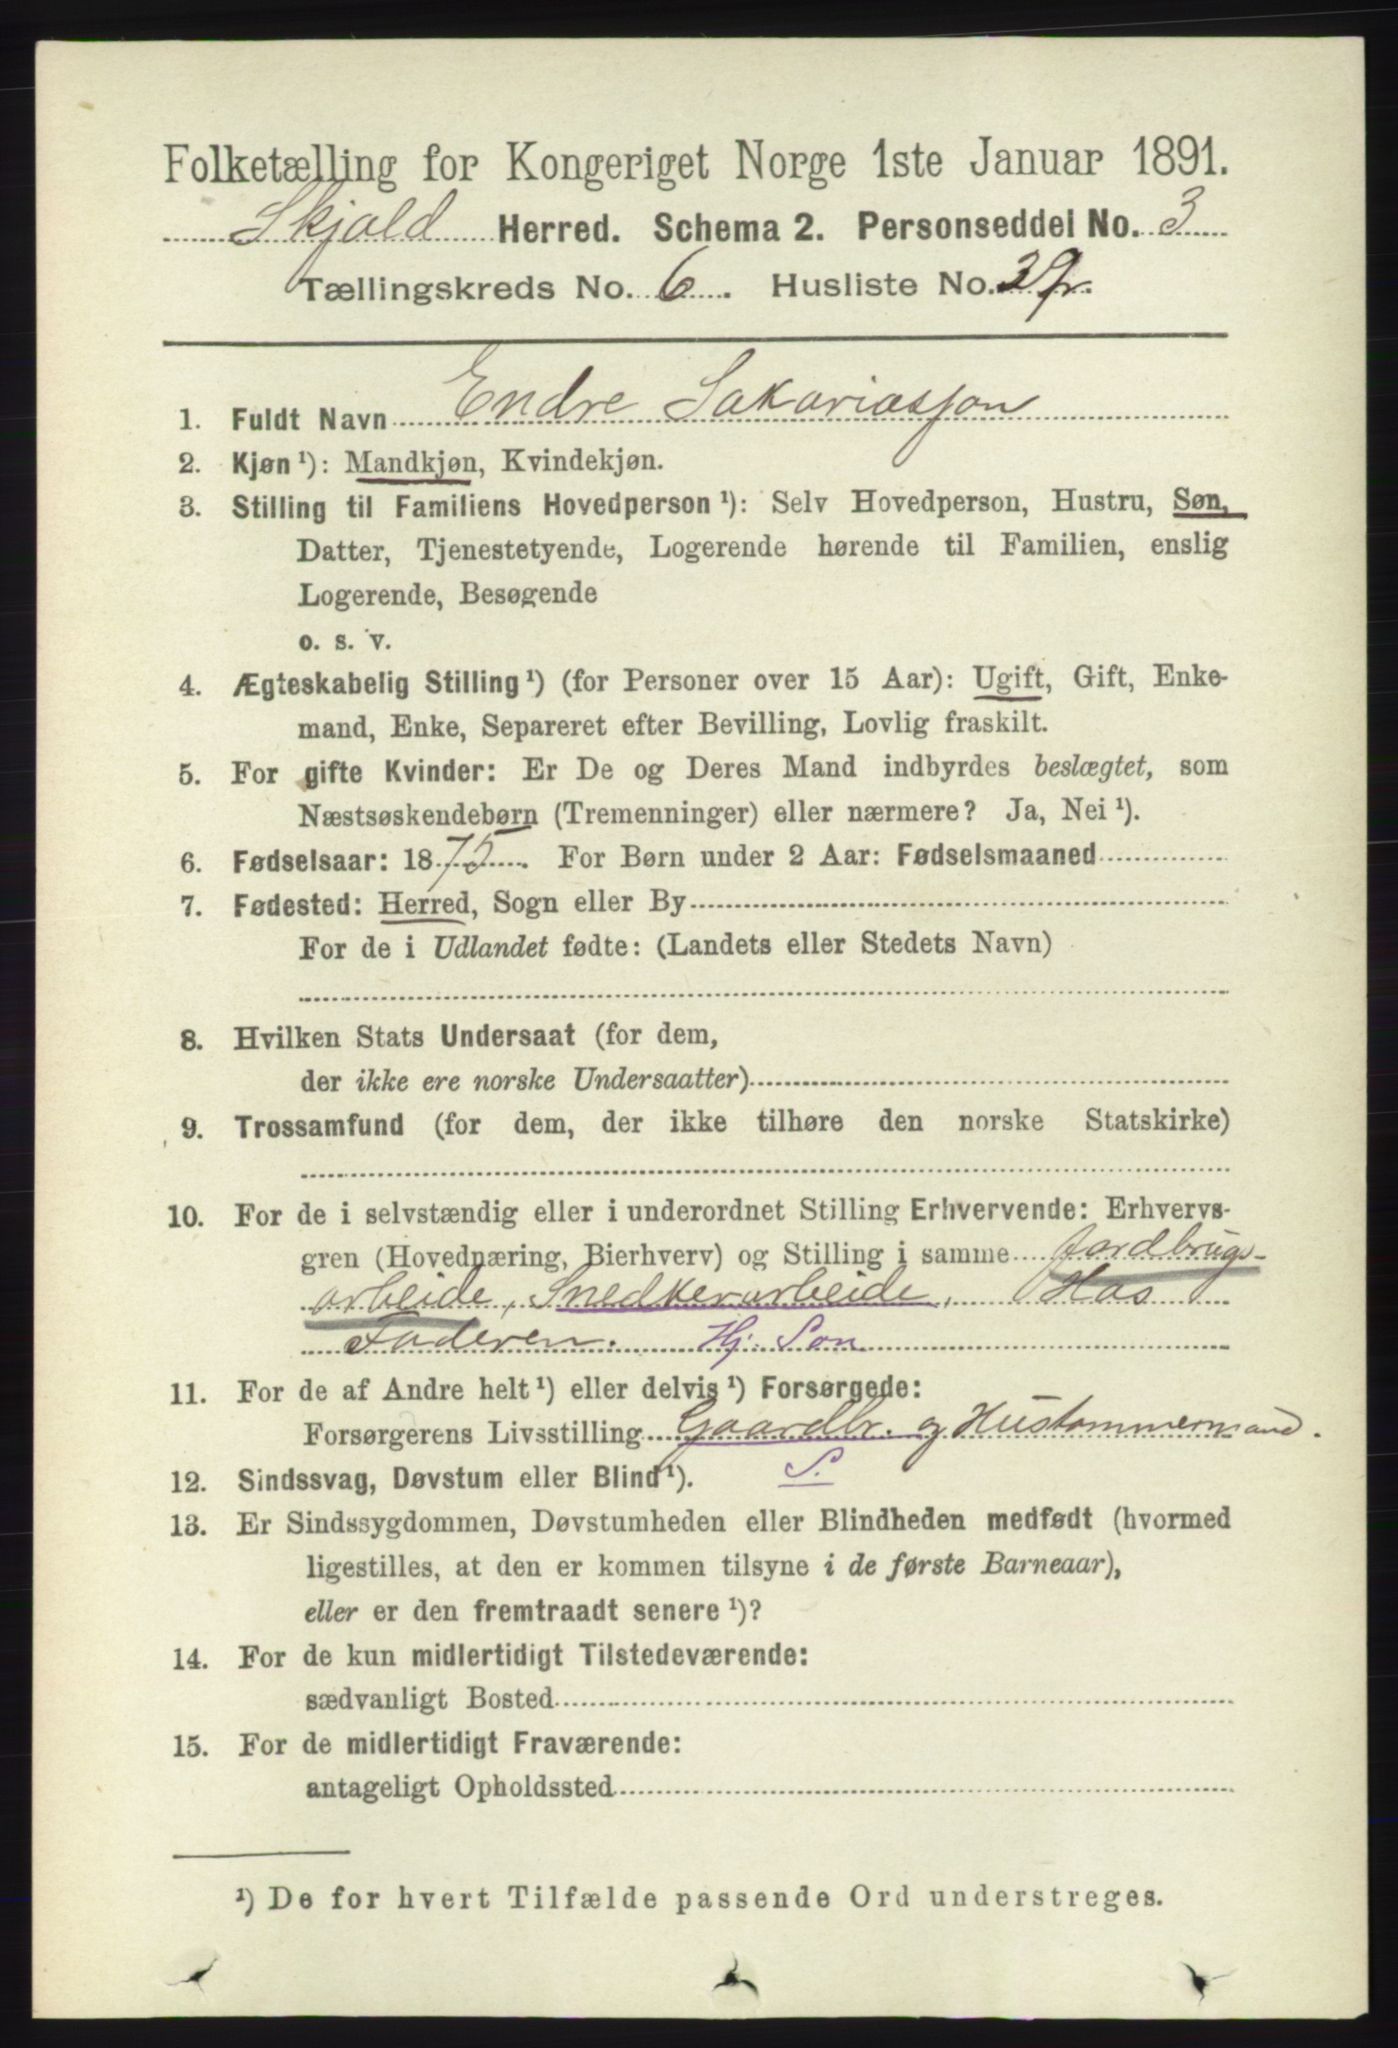 Folketælling for Kongeriget Norge 1ste Januar 1891.
Skjold Herred. Schema 2. Personseddel No. 3
Tællingskreds No. 6. Husliste No. 39
1. Fuldt Navn Endre Sakariassøn
2. Kjøn¹): Mandkjøn, Kvindekjøn.
3. Stilling til Familiens Hovedperson¹): Selv Hovedperson, Hustru, Søn,
Datter, Tjenestetyende, Logerende hørende til Familien, enslig
Logerende, Besøgende
o. s. v.
4. Ægteskabelig Stilling¹) (for Personer over 15 Aar): Ugift, Gift, Enke-
mand, Enke, Separeret efter Bevilling, Lovlig fraskilt.
5. For gifte Kvinder: Er De og Deres Mand indbyrdes beslægtet, som
Næstsøskendebørn (Tremenninger) eller nærmere? Ja, Nei¹).
6. Fødselsaar: 1875. For Børn under 2 Aar: Fødselsmaaned
7. Fødested: Herred, Sogn eller By
For de i Udlandet fødte: (Landets eller Stedets Navn)
8. Hvilken Stats Undersaat (for dem,
der ikke ere norske Undersaatter)
9. Trossamfund (for dem, der ikke tilhøre den norske Statskirke)
10. For de i selvstændig eller i underordnet Stilling Erhvervende: Erhvervs-
gren (Hovednæring, Bierhverv) og Stilling i samme Jordbrugs-
arbeide, Snedkerarbeide, Hos
Faderen. Hj. Søn
11. For de af Andre helt¹) eller delvis¹) Forsørgede:
Forsørgerens Livsstilling Gaardbr. og Hustømmermand.
12. Sindssvag, Døvstum eller Blind¹). S.
13. Er Sindssygdommen, Døvstumheden eller Blindheden medfødt (hvormed
ligestilles, at den er kommen tilsyne i de første Barneaar),
eller er den fremtraadt senere¹)?
14. For de kun midlertidigt Tilstedeværende:
sædvanligt Bosted
15. For de midlertidigt Fraværende:
antageligt Opholdssted
¹) De for hvert Tilfælde passende Ord understreges.